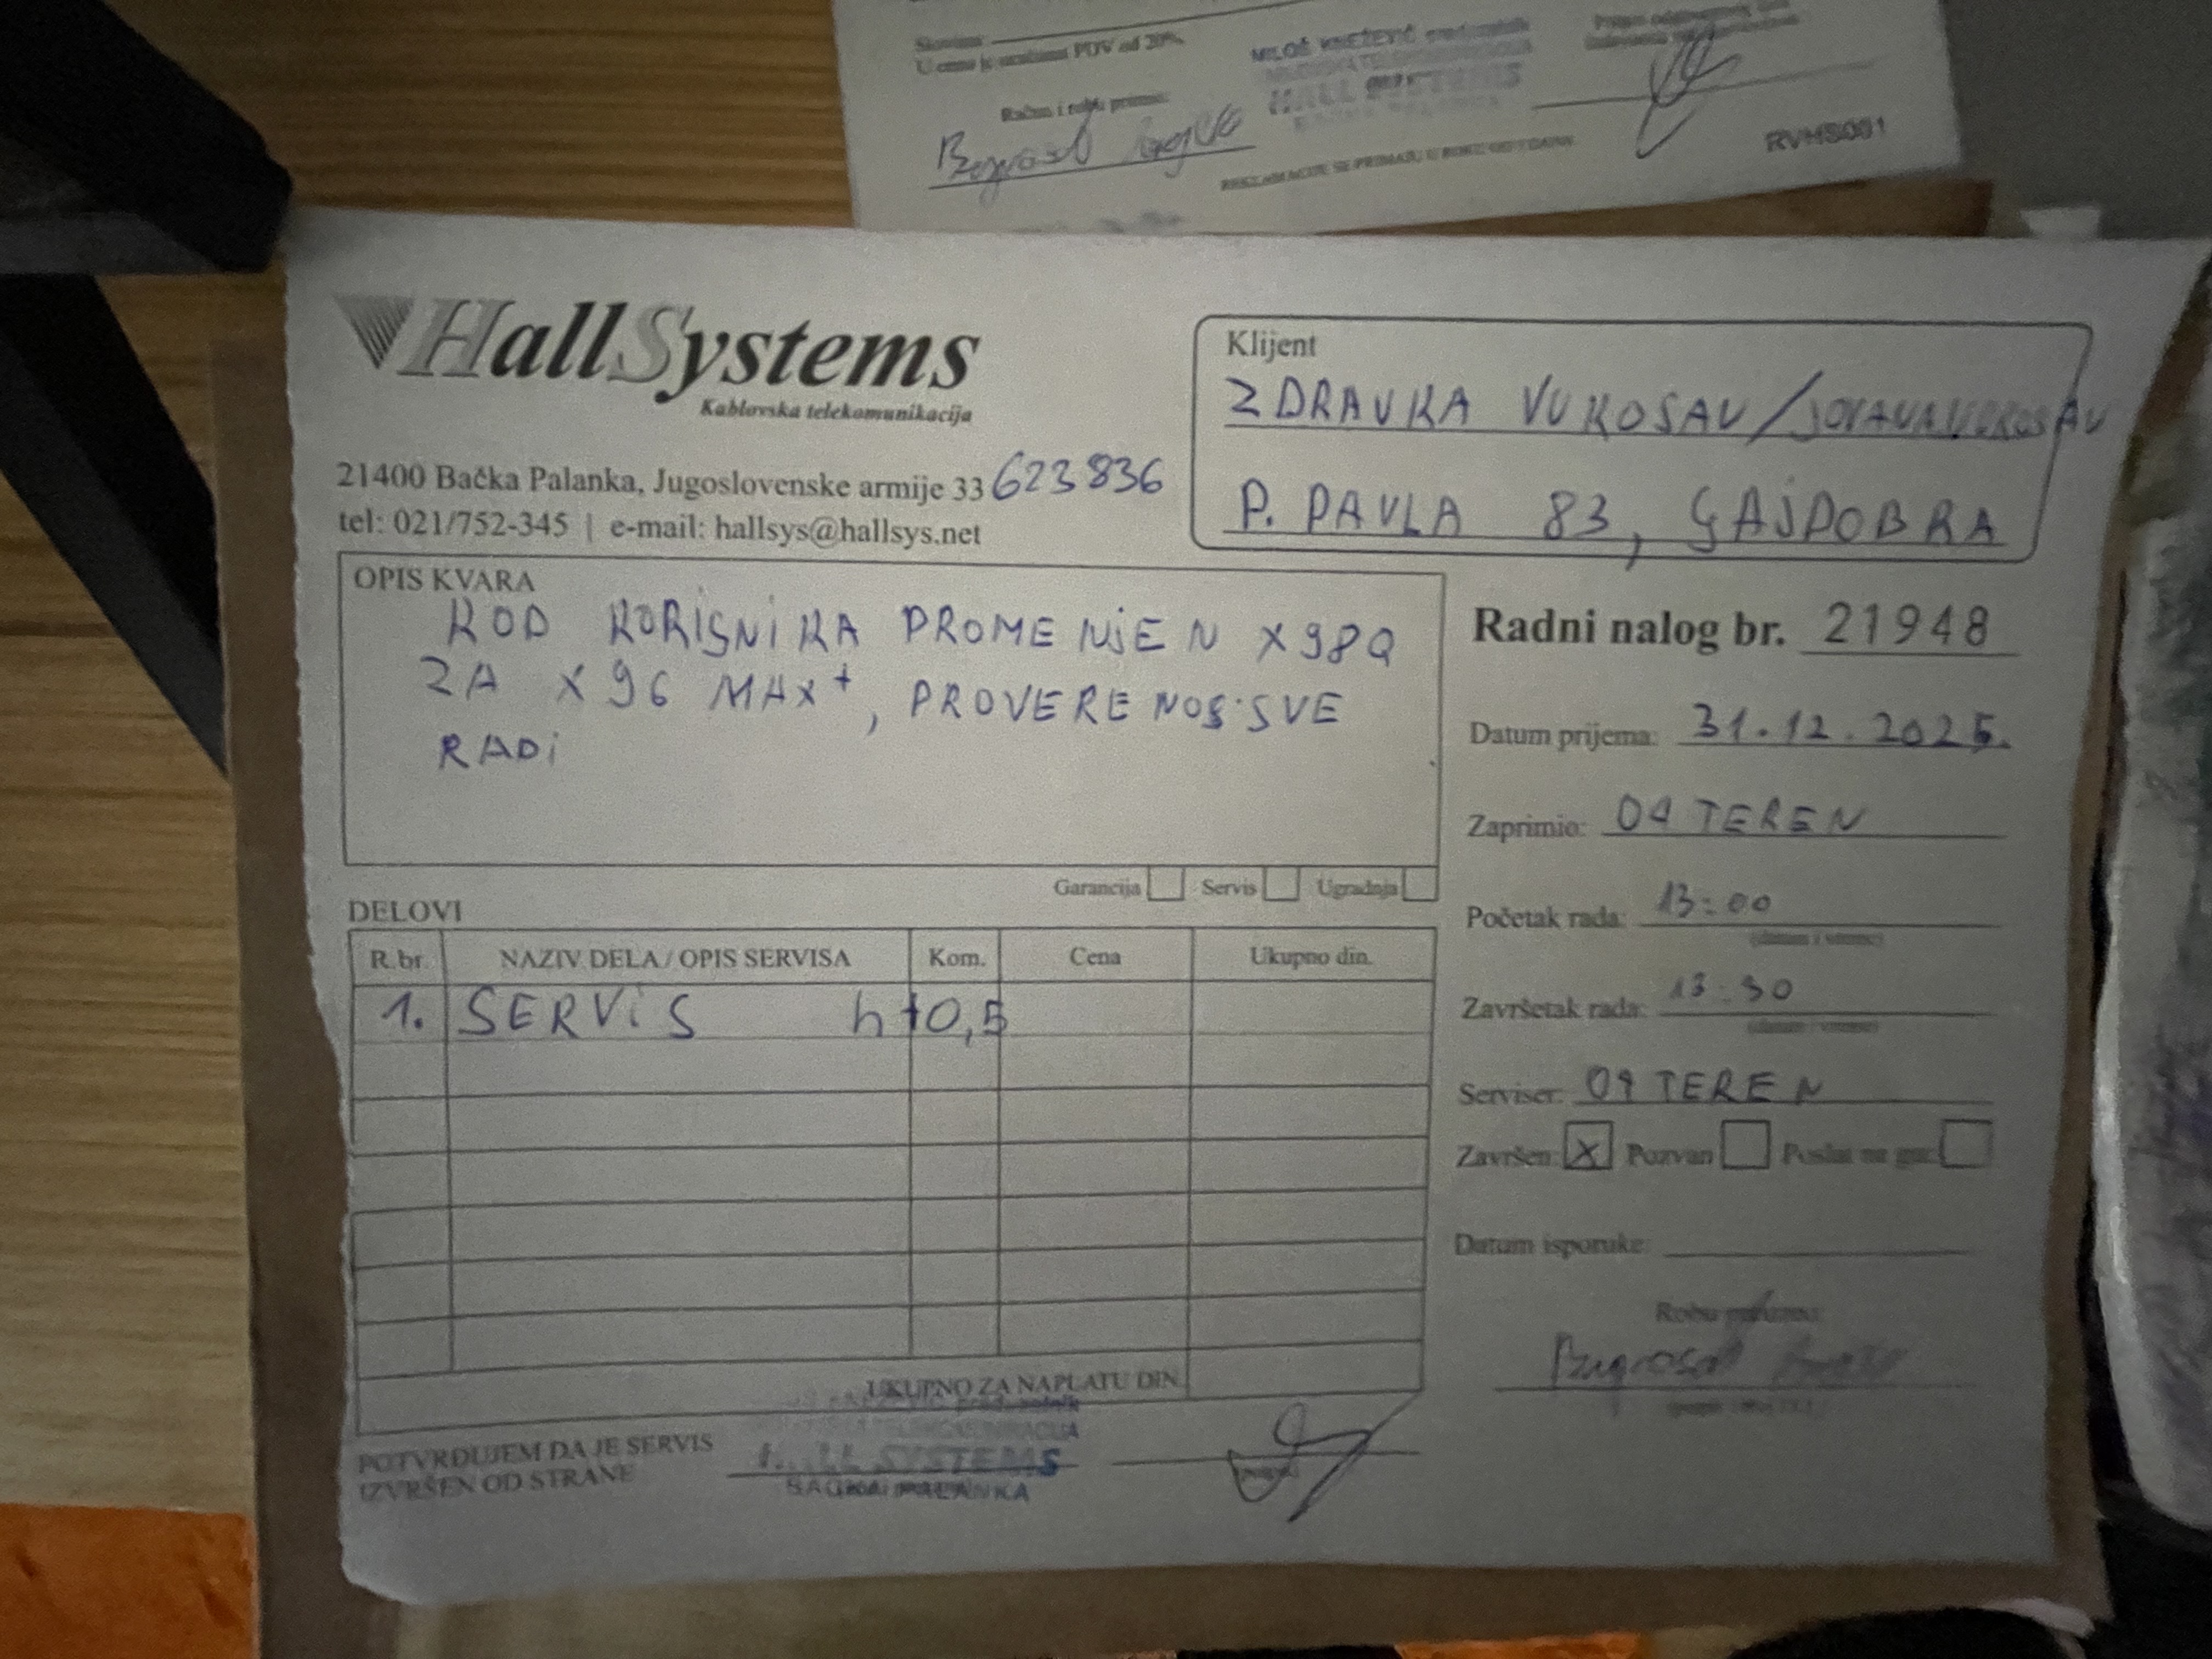 U cenu je uračunat PDV od 20%
MILOŠ KNEŽEVIĆ preduzetnik
HALL SYSTEMS
Račun i robu primio:
REKLAMACIJE SE PRIMAJU U ROKU OD 7 DANA
RVHS001
HallSystems
Kablovska telekomunikacija
21400 Bačka Palanka, Jugoslovenske armije 33 623836
tel: 021/752-345 | e-mail: hallsys@hallsys.net
Klijent
ZDRAVKA VUKOSAV / JOVANA VUKOSAV
P. PAVLA 83, GAJDOBRA
OPIS KVARA
KOD KORISNIKA PROMENJEN X98Q
ZA X96 MAX+, PROVERENO SVE
RADI
Garancija Servis Ugradnja
Radni nalog br. 21948
Datum prijema: 31.12.2025.
Zaprimio: 09 TEREN
Početak rada: 13:00
(datum i vreme)
Završetak rada: 13:30
(datum i vreme)
Serviser: 09 TEREN
Završen: X Pozvan Poslat na gar.
Datum isporuke:
DELOVI
R.br. NAZIV DELA / OPIS SERVISA Kom. Cena Ukupno din.
1. SERVIS h 0,5
UKUPNO ZA NAPLATU DIN
POTVRĐUJEM DA JE SERVIS
IZVRŠEN OD STRANE
HALL SYSTEMS
BAČKA PALANKA